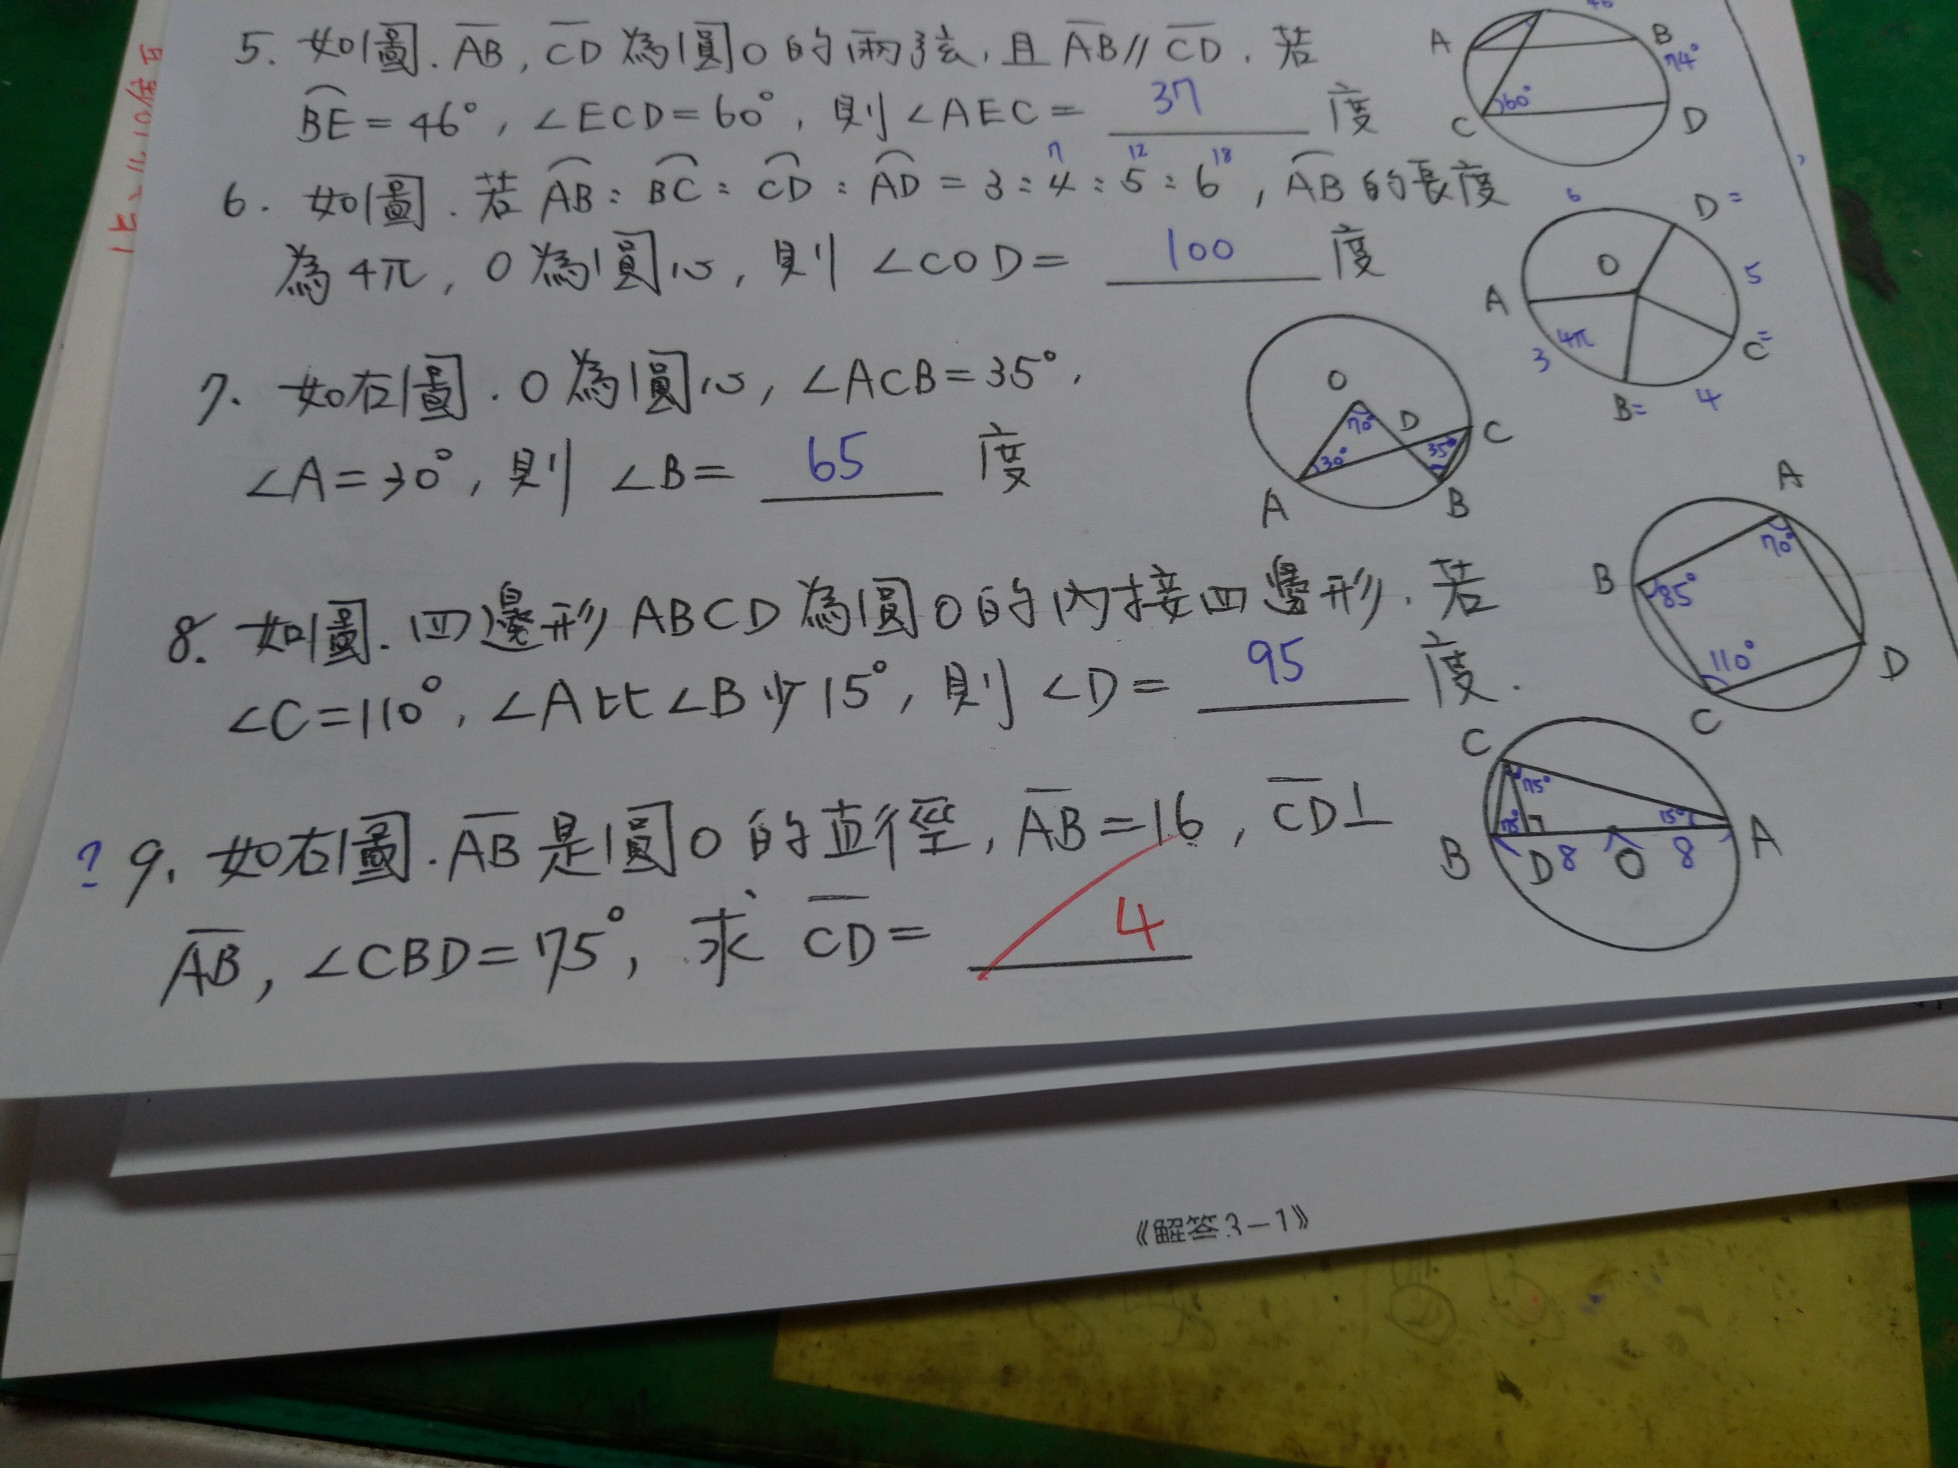 5. 如圖. AB, CD 為圓O的兩弦, 且 AB // CD. 若
BE = 46°, ∠ECD = 60°, 則 ∠AEC = 37 度
A B C D 74° 60°
7 12 18
6. 如圖. 若 AB : BC : CD : AD = 3 : 4 : 5 : 6, AB 的長度
為 4π, O 為圓心, 則 ∠COD = 100 度
6 D= 5 O A 3 4π C= B= 4
7. 如右圖. O 為圓心, ∠ACB = 35°,
∠A = 30°, 則 ∠B = 65 度
O 70° D C 35° 30° A B
8. 如圖. 四邊形 ABCD 為圓 O 的內接四邊形. 若
∠C = 110°, ∠A 比 ∠B 少 15°, 則 ∠D = 95 度.
A 70° B 85° 110° D C
? 9. 如右圖. AB 是圓 O 的直徑, AB = 16, CD ⊥
AB, ∠CBD = 75°, 求 CD = 4
C 75° 15° B D 8 O 8 A
《解答3-1》